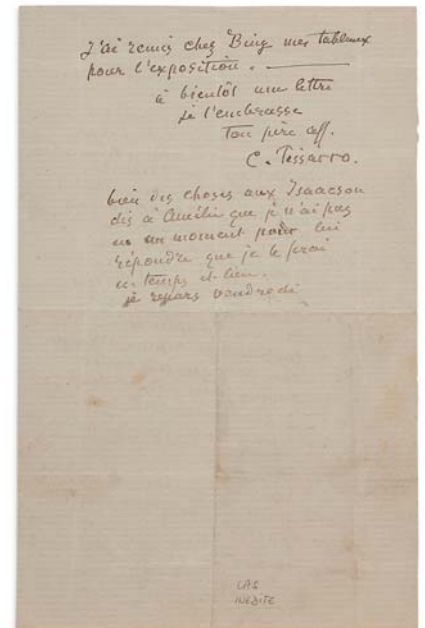 J'ai remis chez Bing mes tableaux
pour l'exposition. —
à bientôt une lettre
je t'embrasse
Ton père aff.
C. Pissarro.
bien des choses aux Isaacson
dis à Amélie que je n'ai pas
eu un moment pour lui
répondre que je le ferai
en temps et lieu.
je repars vendredi
LAS
INEDITE